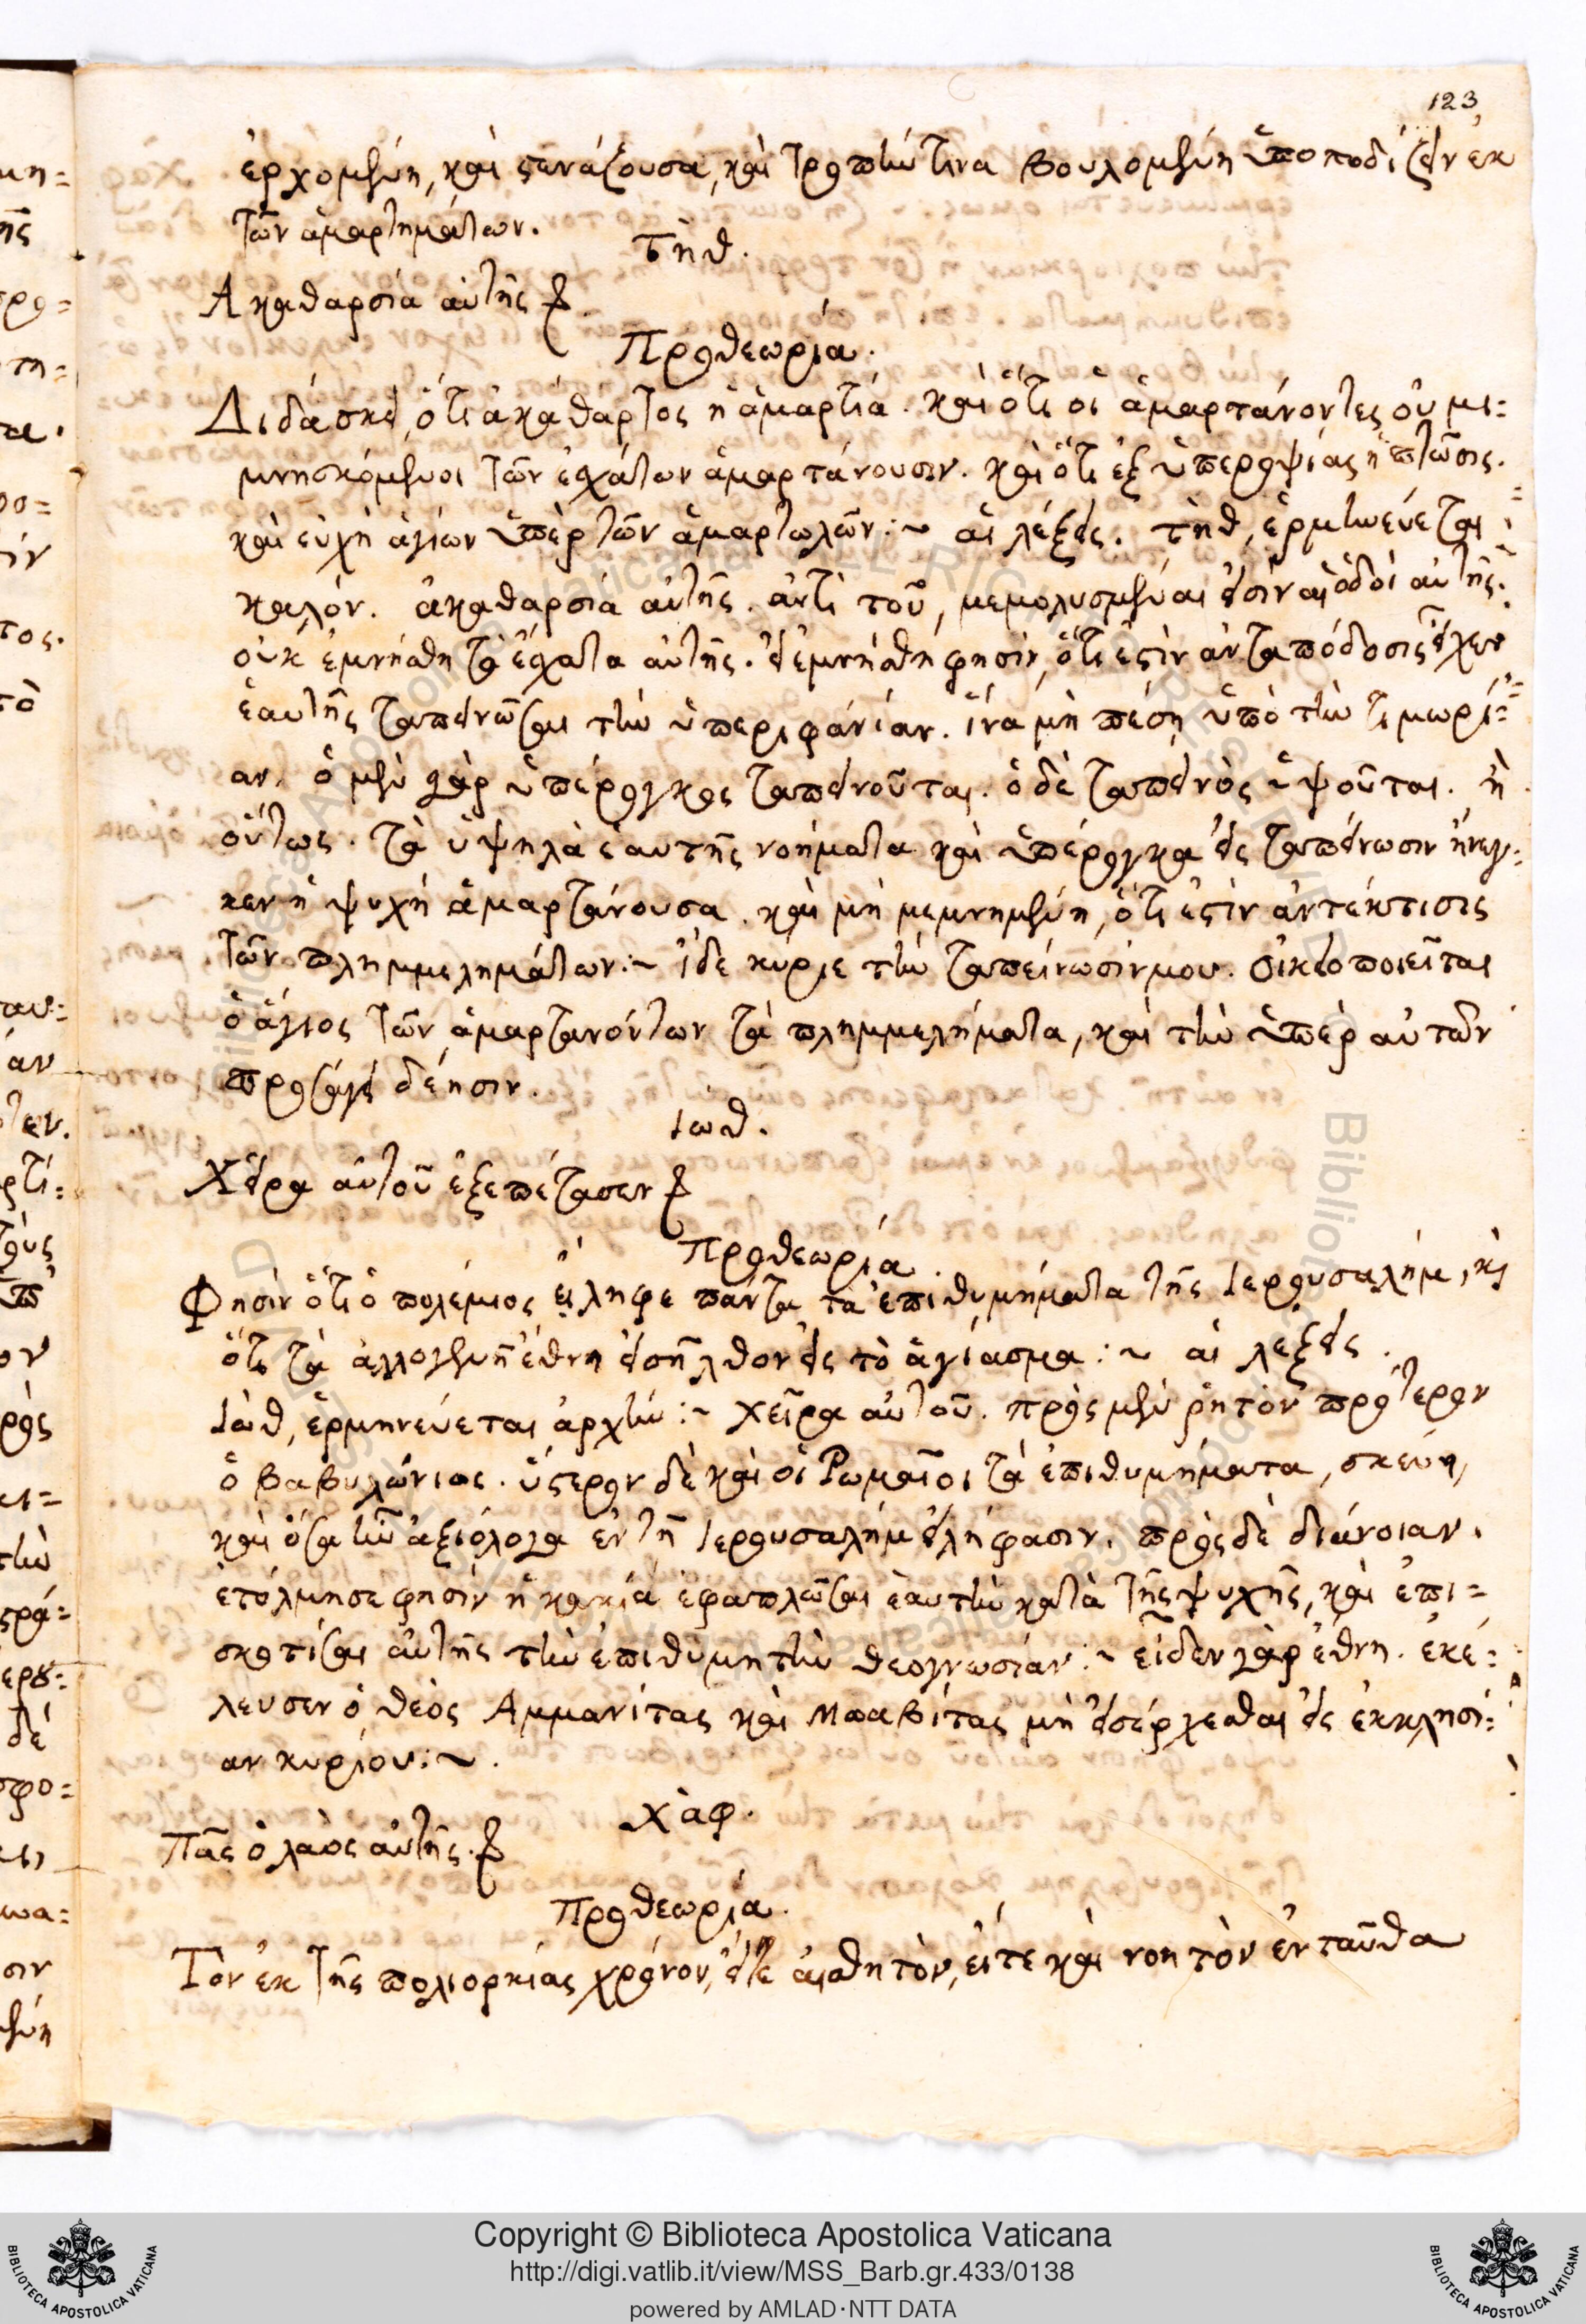 123
ἐρχομένη, καὶ στενάζουσα, καὶ τροπήν τινα βουλομένη ὑποποδίζειν ἐκ
τῶν ἁμαρτημάτων.
Τὴθ.
Ἀκαθαρσία αὐτῆς
Προθεωρία.
Διδάσκει, ὅτι ἀκάθαρτος ἡ ἁμαρτία. καὶ ὅτι οἱ ἁμαρτάνοντες οὐ μι=
μνησκόμενοι τῶν ἐσχάτων ἁμαρτάνουσιν. καὶ ὅτι ἐξ ὑπεροψίας ἡ πτῶσις.
καὶ εὐχὴ ἁγίων ὑπὲρ τῶν ἁμαρτωλῶν :~ αἱ λέξεις. τὴθ, ἑρμηνεύεται
καλόν. ἀκαθαρσία αὐτῆς. ἀντὶ τοῦ, μεμολυσμέναι εἰσὶν αἱ ὁδοὶ αὐτῆς.
οὐκ ἐμνήσθη τὰ ἔσχατα αὐτῆς. εἰ ἐμνήσθη φησὶν, ὅτι ἐστὶν ἀνταπόδοσις εἶχεν
ἑαυτῆς ταπεινῶσαι τὴν ὑπεριφάνίαν. ἵνα μὴ πέσῃ ὑπὸ τὴν τιμωρί=
αν. ὁ μὲν γὰρ ὑπέρογκος ταπεινοῦται. ὁ δὲ ταπεινὸς ὑψοῦται. ἢ
οὕτως. τὰ ὑψηλὰ ἑαυτῆς νοήματα καὶ ὑπέρογκα εἰς ταπείνωσιν ἤνεγ=
κεν ἡ ψυχὴ ἁμαρτάνουσα. καὶ μὴ μεμνημένη, ὅτι ἐστὶν ἀντέκτισις
τῶν πλημμελημάτων :~ ἴδε κύριε τὴν ταπείνωσίν μου. οἰκειοποιεῖται
ὁ ἅγιος τῶν ἁμαρτανόντων τὰ πλημμελήματα, καὶ τὴν ὑπὲρ αὐτῶν
προσάγει δέησιν.
Ιωθ.
Χεῖρα αὐτοῦ ἐξεπέτασεν
Προθεωρία.
Φησὶν ὅτι ὁ πολέμιος εἴληφε πάντα τὰ ἐπιθυμήματα τῆς Ιερουσαλήμ, κὶ
ὅτι τὰ ἀλλογενῆ ἔθνη εἰσῆλθον εἰς τὸ ἁγίασμα :~ αἱ λέξεις.
Ιὼθ, ἑρμηνεύεται ἀρχήν :~ χεῖρα αὐτοῦ. πρὸς μὲν ῥητὸν πρότερον
ὁ Βαβυλώνιος. ὕστερον δὲ καὶ οἱ Ῥωμαῖοι τὰ ἐπιθυμήματα, σκεύη,
καὶ ὅσα ἦν ἀξιόλογα ἐν τῇ Ιερουσαλήμ εἰλήφασιν. πρὸς δὲ διάνοιαν.
ἐτόλμησε φησὶν ἡ κακία ἐφαπλῶσαι ἑαυτὴν κατὰ τῆς ψυχῆς, καὶ ἐπι=
σκοτίσαι αὐτῆς τὴν ἐπιθυμητὴν θεογνωσίαν :~ εἶδεν γὰρ ἔθνη. ἐκέ=
λευσεν ὁ θεὸς Αμμανίτας καὶ Μοαβίτας μὴ εἰσέρχεσθαι εἰς ἐκκλησί=
αν κυρίου :~.
Χὰφ.
Πᾶς ὁ λαὸς αὐτῆς.
Προθεωρία.
Τὸν ἐκ τῆς πολιορκίας χρόνον, εἴτε αἰσθητὸν, εἴτε καὶ νοητὸν ἐνταῦθα
Copyright © Biblioteca Apostolica Vaticana
http://digi.vatlib.it/view/MSS_Barb.gr.433/0138
powered by AMLAD·NTT DATA
BIBLIOTECA APOSTOLICA VATICANA
BIBLIOTECA APOSTOLICA VATICANA